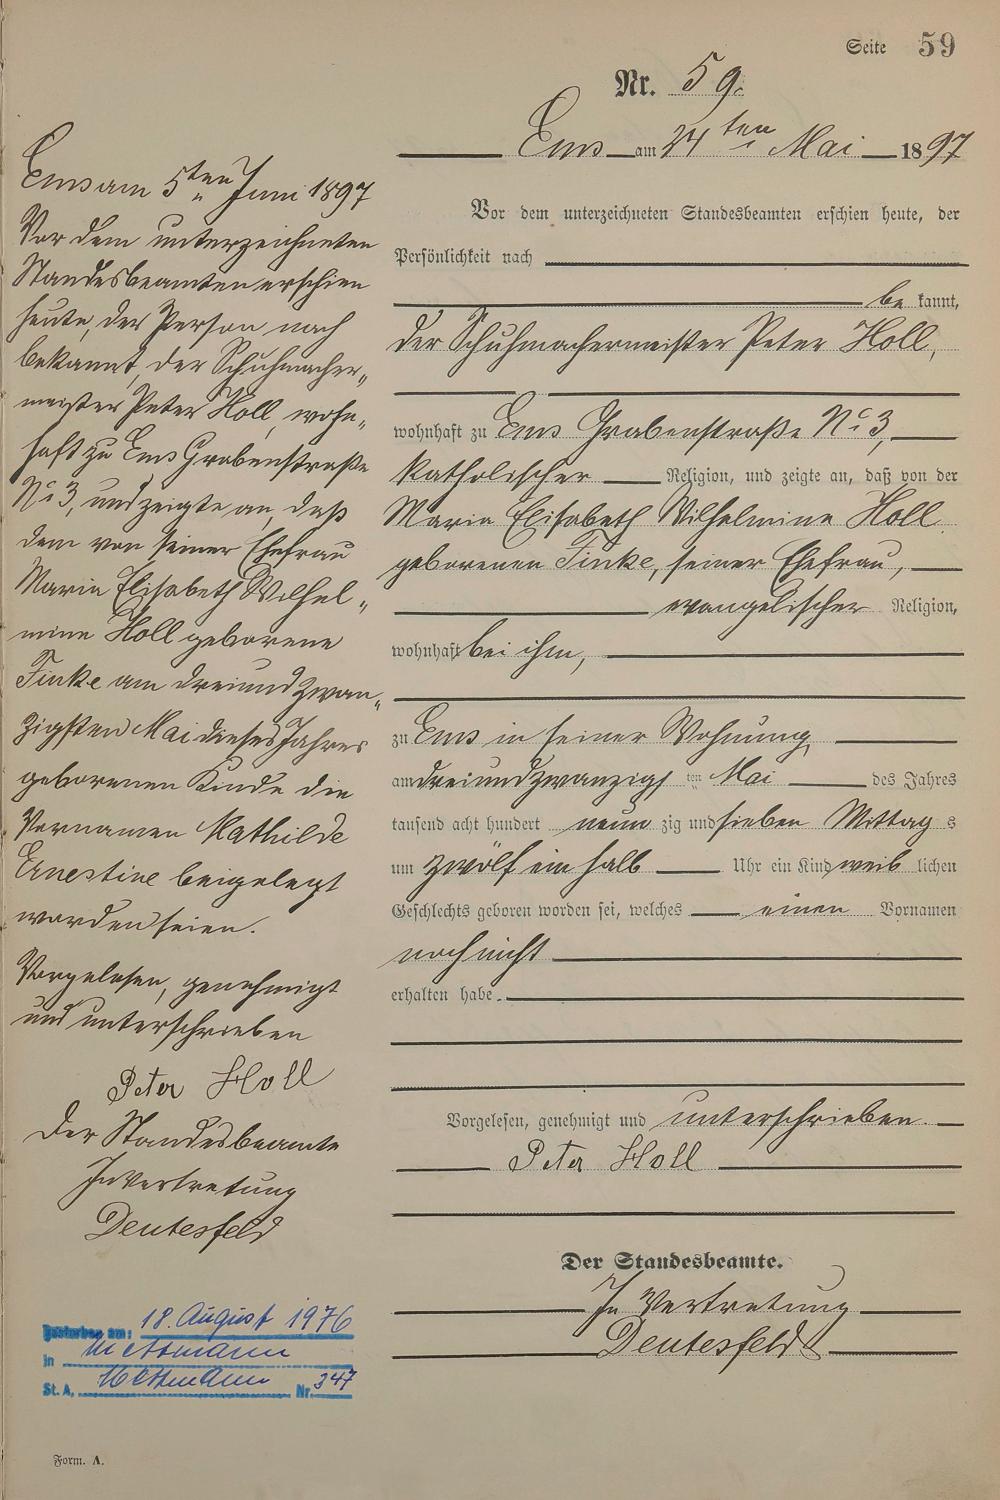 Seite 59
Nr. 59.
Ems am 24ten Mai 1897
Vor dem unterzeichneten Standesbeamten erschien heute, der
Persönlichkeit nach
be kannt,
der Schuhmachermeister Peter Holl,
wohnhaft zu Ems Grabenstraße No 3,
katholischer Religion, und zeigte an, daß von der
Maria Elisabeth Wilhelmine Holl
geborenen Finke, seiner Ehefrau,
evangelischer Religion,
wohnhaft bei ihm,
zu Ems in seiner Wohnung,
am dreiundzwanzigs ten Mai des Jahres
tausend acht hundert neun zig und sieben Mittag s
um zwölf ein halb Uhr ein Kind weib lichen
Geschlechts geboren worden sei, welches einen Vornamen
noch nicht
erhalten habe.
Vorgelesen, genehmigt und unterschrieben.
Peter Holl
Der Standesbeamte.
In Vertretung
Deutesfeld
Ems am 5ten Juni 1897
Vor dem unterzeichneten
Standesbeamten erschien
heute, der Person nach
bekannt, der Schuhmacher„
meister Peter Holl, wohn„
haft zu Ems Grabenstraße
No 3, und zeigte an, daß
dem von seiner Ehefrau
Maria Elisabeth Wilhel„
mine Holl geborene
Finke am dreiundzwan„
zigsten Mai dieses Jahres
geborenen Kinde die
Vornamen Mathilde
Ernestine beigelegt
worden seien.
Vorgelesen, genehmigt
und unterschrieben
Peter Holl
Der Standesbeamte
In Vertretung
Deutesfeld
Gestorben am: 18. August 1976
in Mettmann
St. A. Mettmann Nr. 347
Form. A.